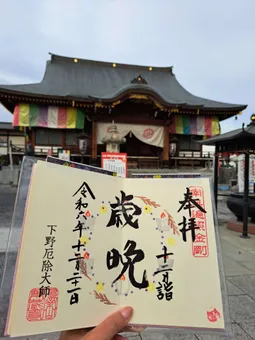 奉拝
歳晩
十二月詣
令和六年十二月二十一日
下野厄除大師